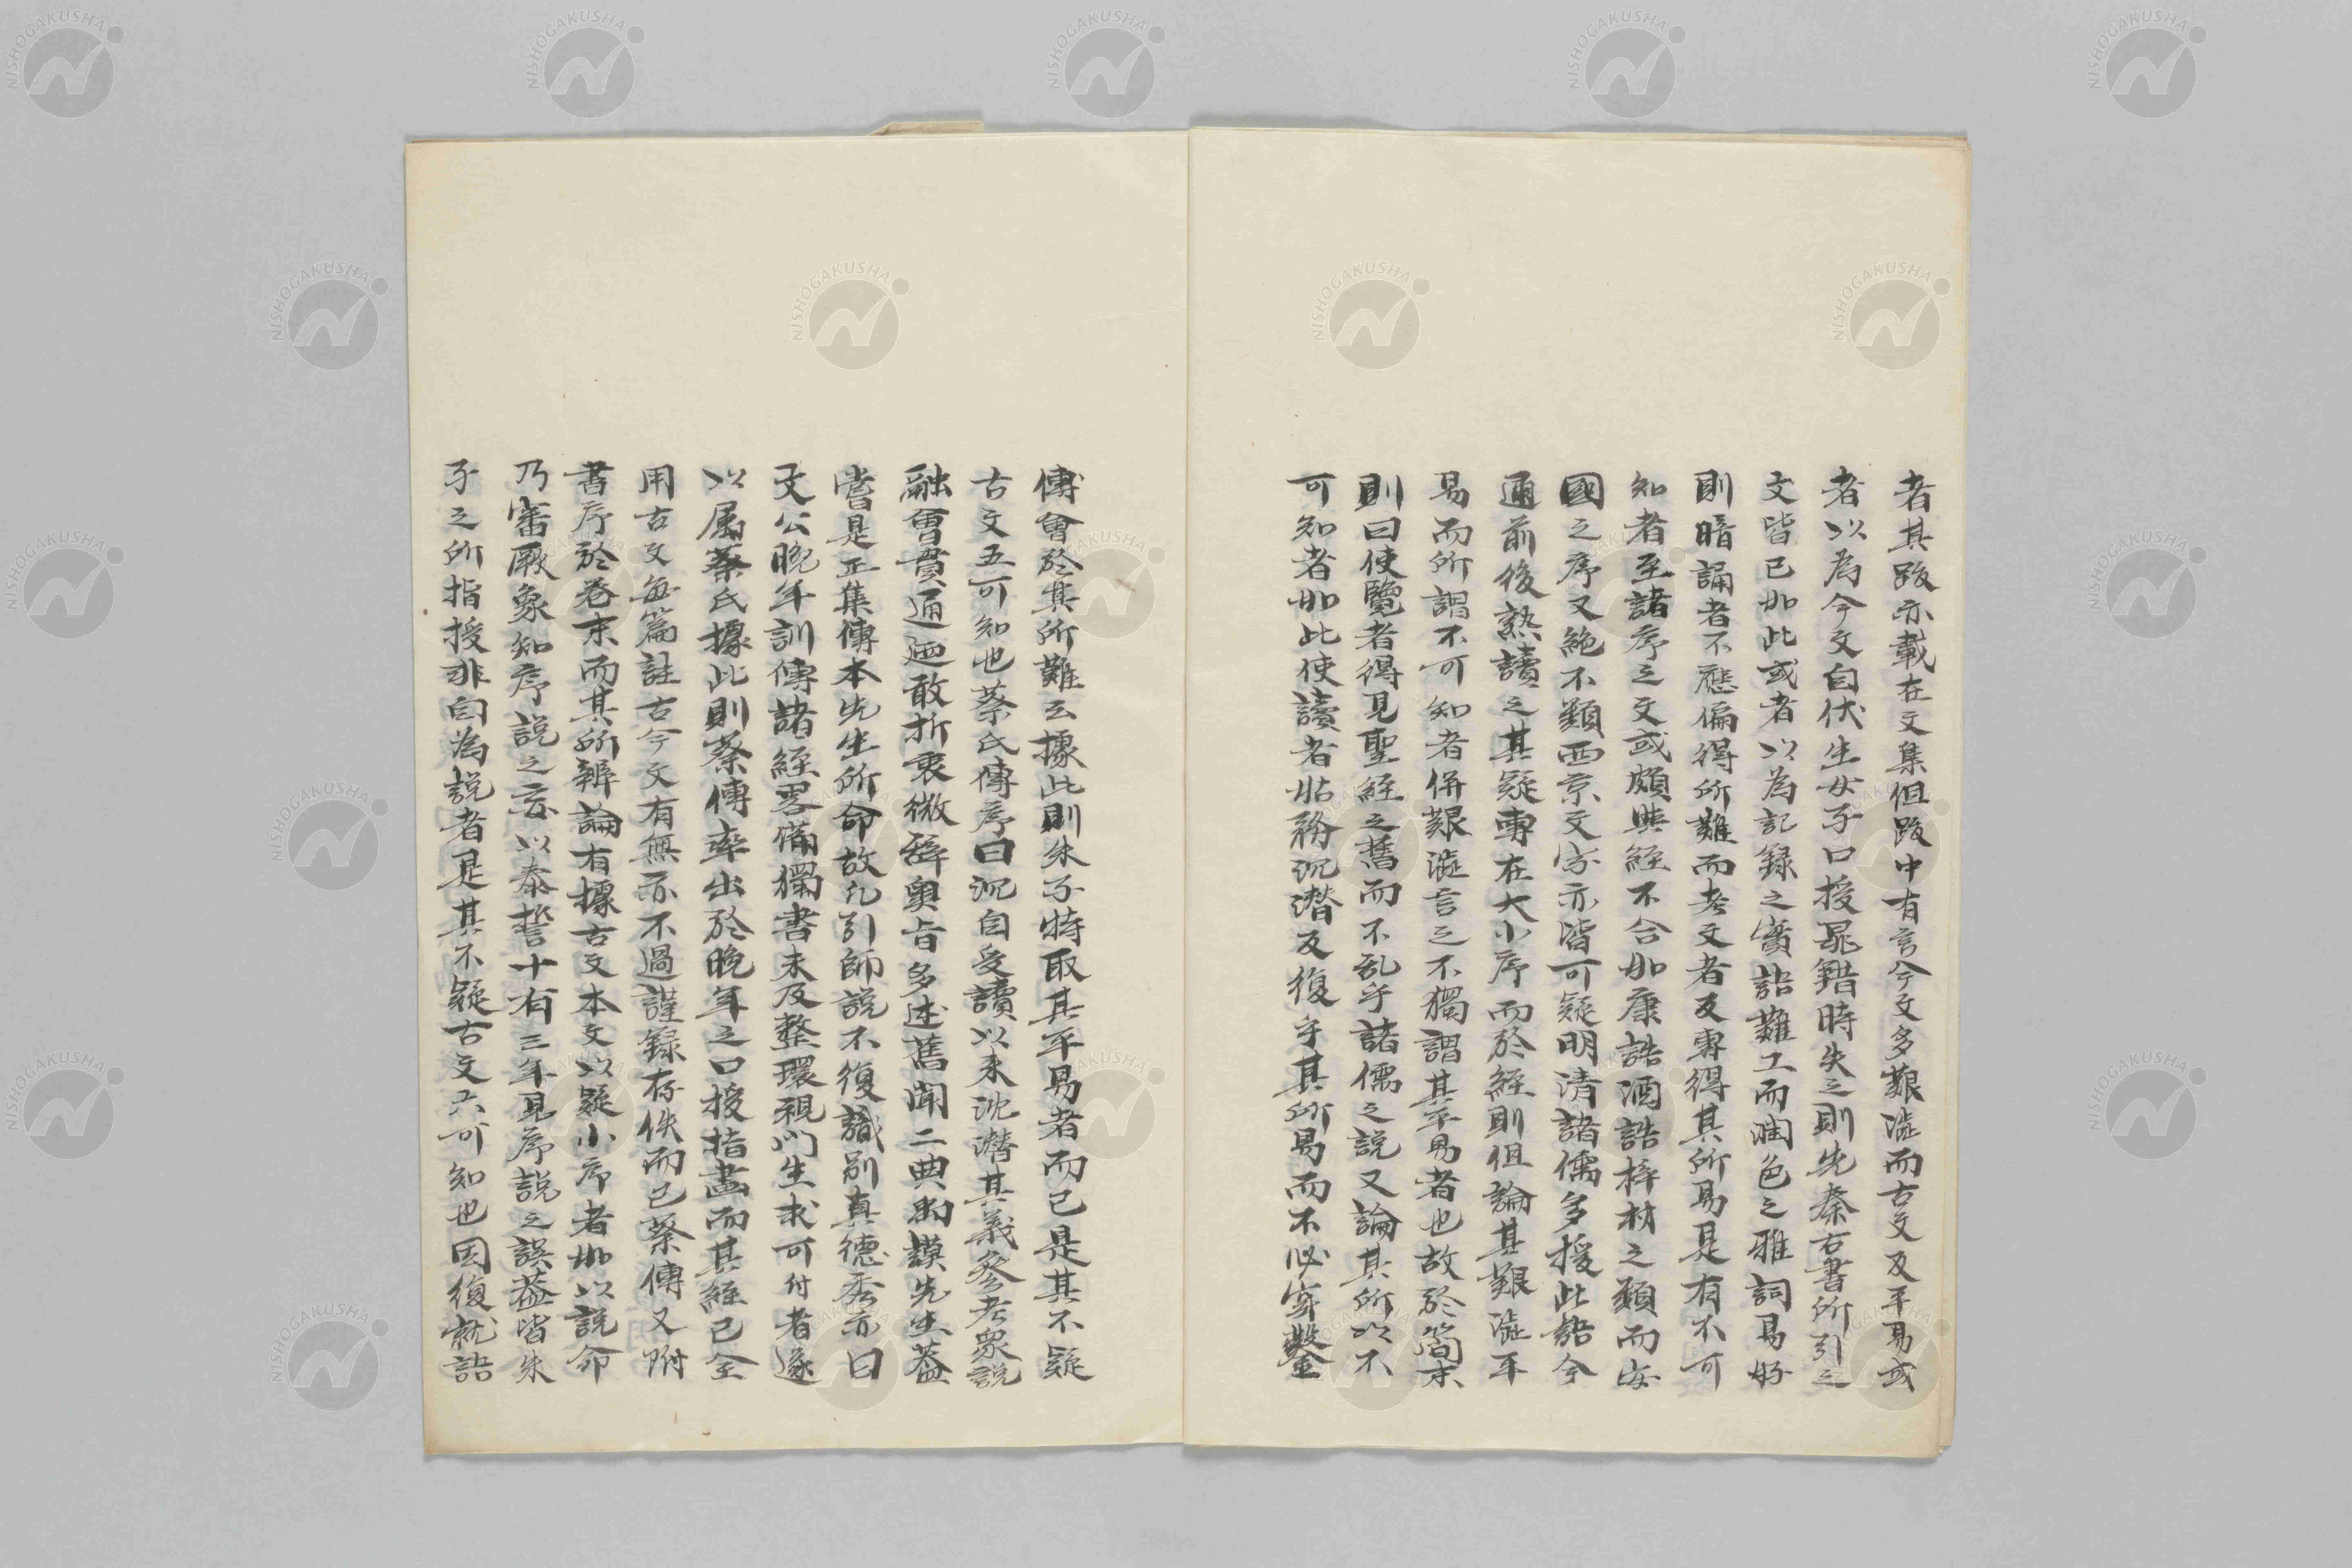 者其跋亦載在文集但跋中有言今文多艱澁而古文反平易或
者以為今文自伏生女子口授晁錯時失之則先秦古書所引之
文皆已如此或者以為記録之實語難工而潤色之雅詞易好
則暗誦者不應偏得所難而考文者反専得其所易是有不可
知者至諸序之文或頗與經不合如康誥酒誥梓材之類而安
國之序又絶不類西京文字亦皆可疑明清諸儒多援此語今
通前後熟讀之其疑專在大小序而於經則但論其艱澁平
易而所謂不可知者併艱澁言之不獨謂其平易者也故於簡末
則曰使覽者得見聖經之舊而不乱乎諸儒之説又論其所以不
可知者如此使讀者姑務沉潜反復乎其所易而不必穿鑿
傅會於其所難云據此則朱子特取其平易者而已是其不疑
古文五可知也蔡氏傳序曰沉自受讀以来沈潜其義參考衆説
融會貫通廼敢折衷微辞奥旨多述舊聞二典禹謨先生蓋
嘗是正集傳本先生所命故凡引師説不復識別真徳秀亦曰
文公晩年訓傳諸經畧備獨書未及整環視門生求可付者遂
以属蔡氏據此則蔡傳率出於晩年之口授指畫而其經已全
用古文毎篇註古今文有無亦不過謹録存佚而已蔡傳又附
書序於巻末而其所辨論有據古文本文以疑小序者如以説命
乃審厥象知序説之 以泰誓十有三年見序説之誤蓋皆朱
子之所指授非自為説者是其不疑古文六可知也因復就語